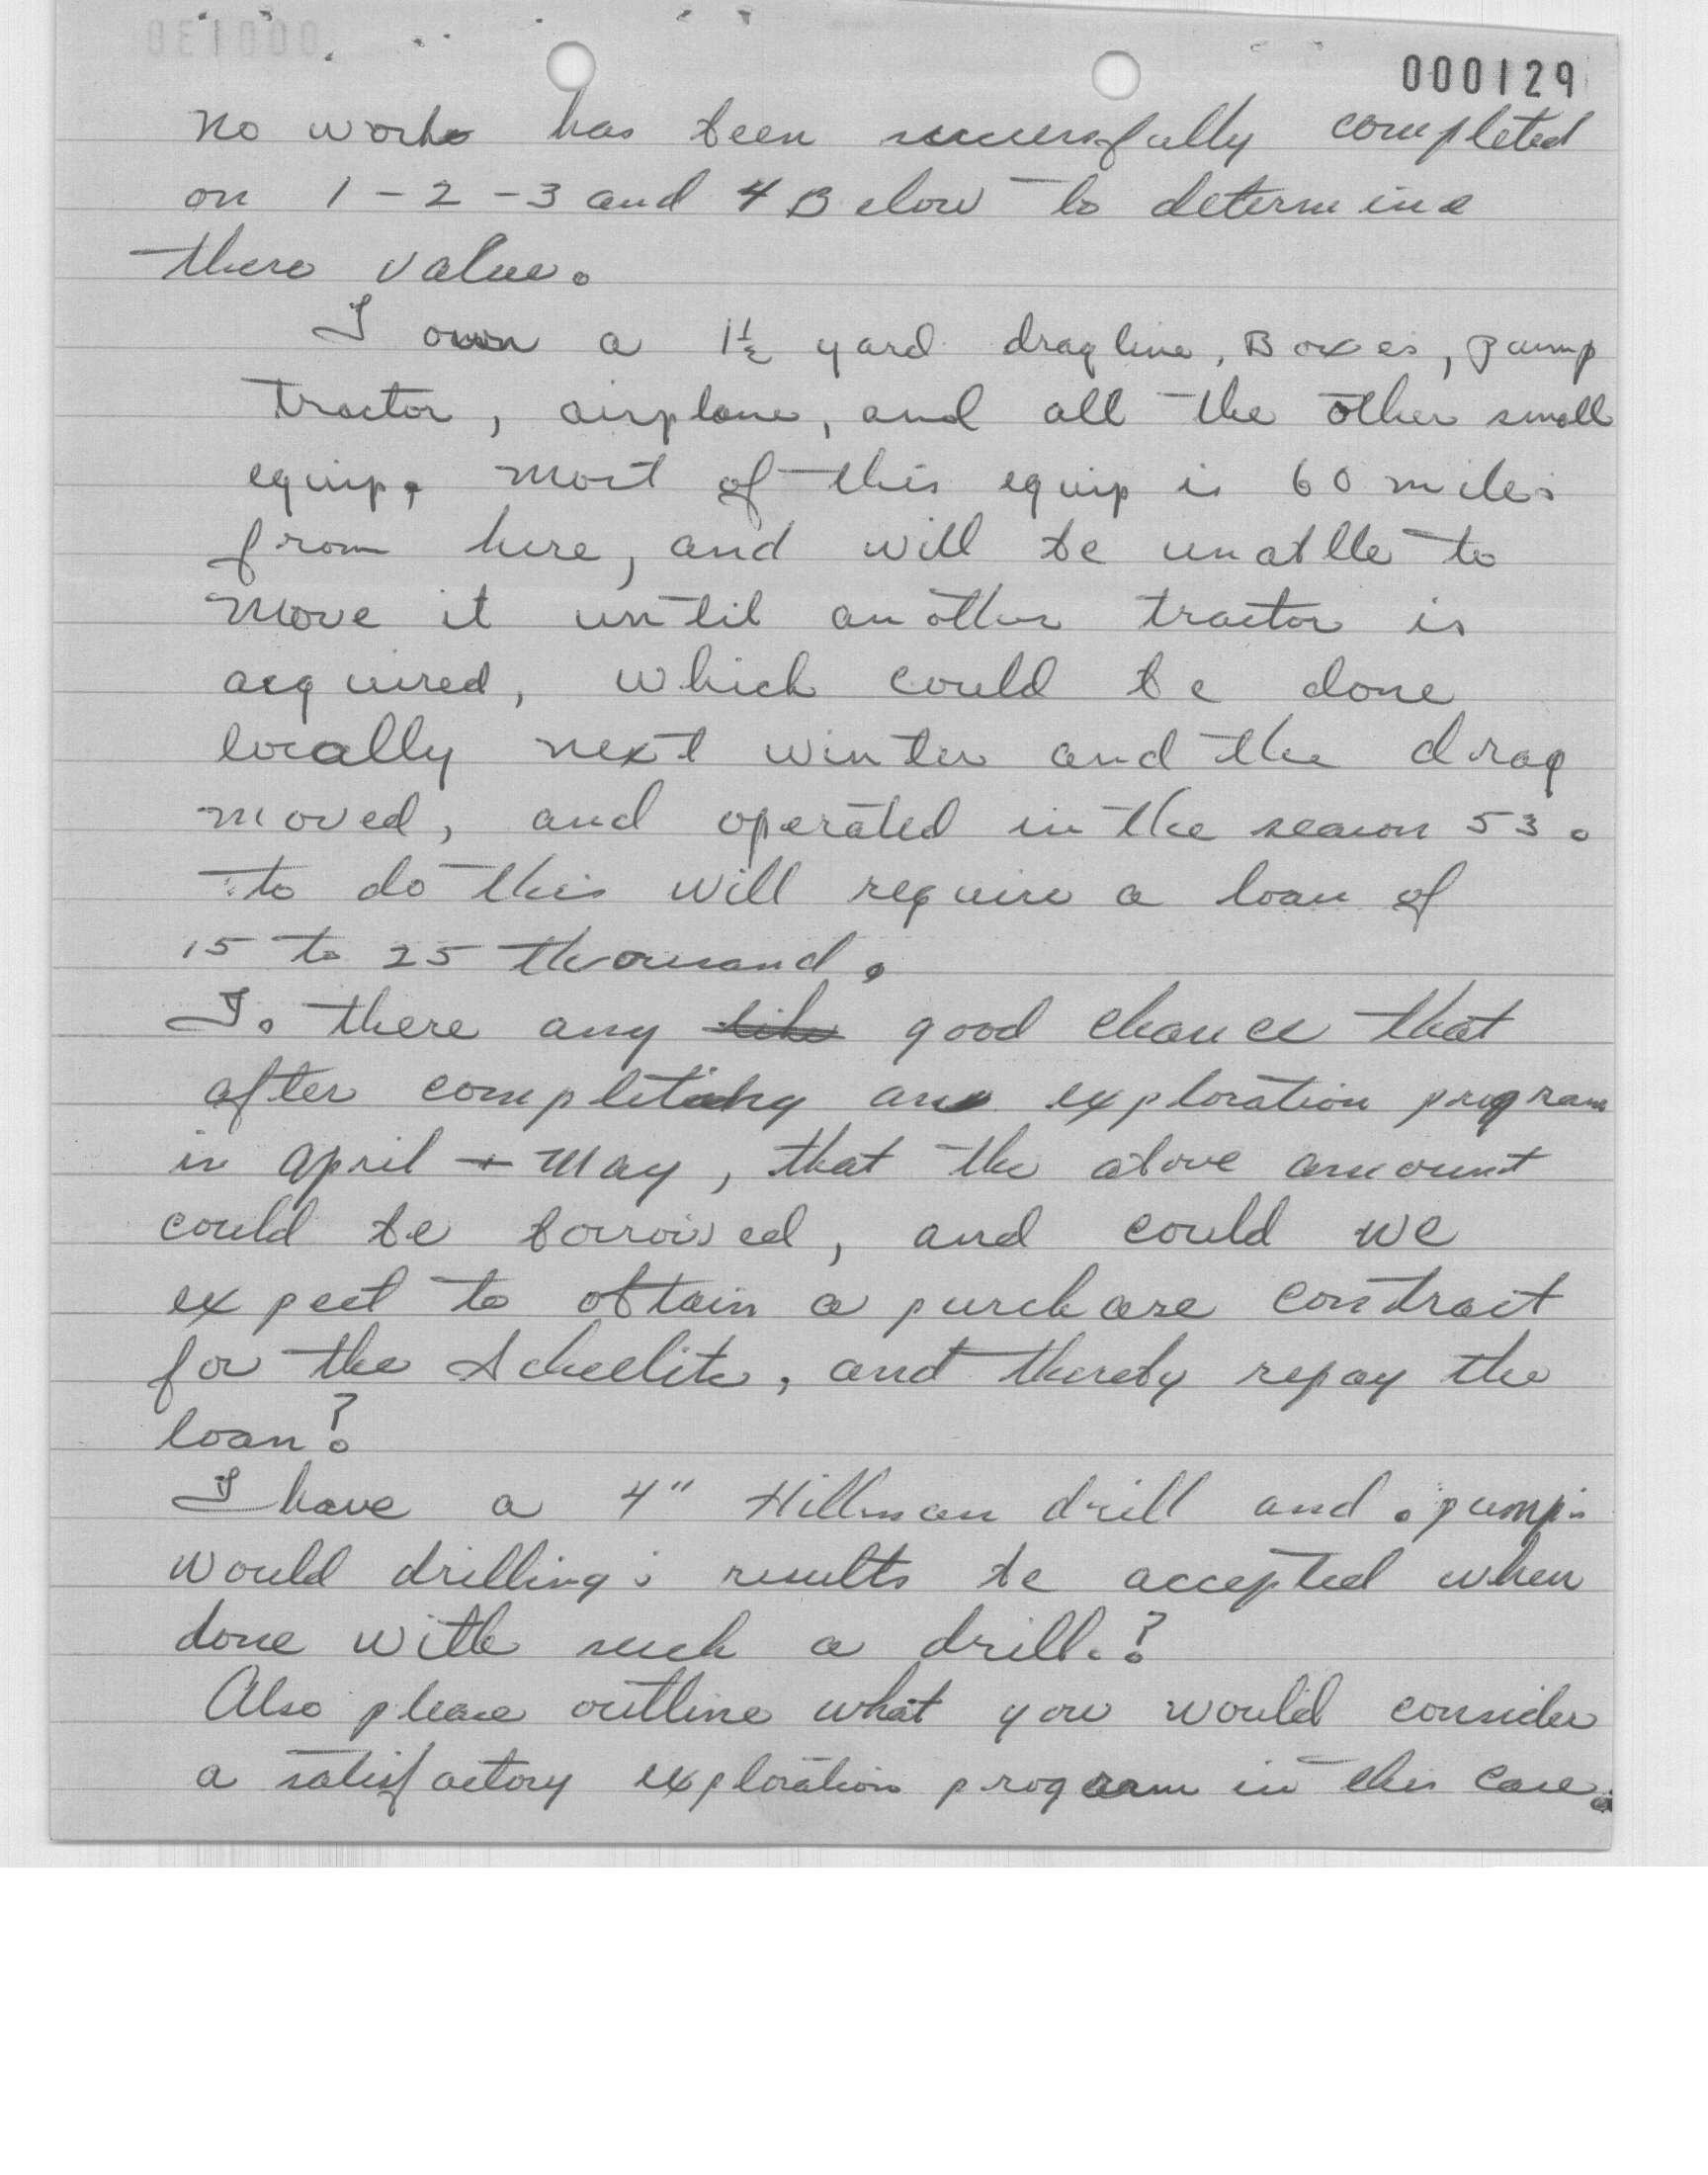 000129
No work has been successfully completed
on 1-2-3 and 4 Below to determine
there value.
I own a 1½ yard dragline, Boxes, pump
tractor, airplane, and all the other small
equip. Most of this equip is 60 miles
from here, and will be unable to
move it until another tractor is
acquired, which could be done
locally next winter and the drag
moved, and operated in the season 53.
to do this will require a loan of
15 to 25 thousand.
Is there any good chance that
after completing an exploration program
in April + May, that the above amount
could be borrowed, and could we
expect to obtain a purchase contract
for the Scheelite, and thereby repay the
loan?
I have a 4" Hillman drill and pump.
Would drilling results be accepted when
done with such a drill.?
Also please outline what you would consider
a satisfactory exploration progarm in this case.